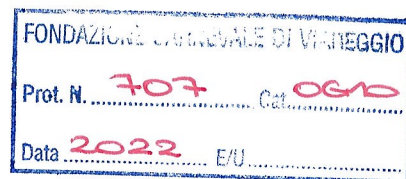 FONDAZIONE CARNEVALE DI VIAREGGIO
Prot. N. 707 Cat. OGAD
Data 2022 E/U